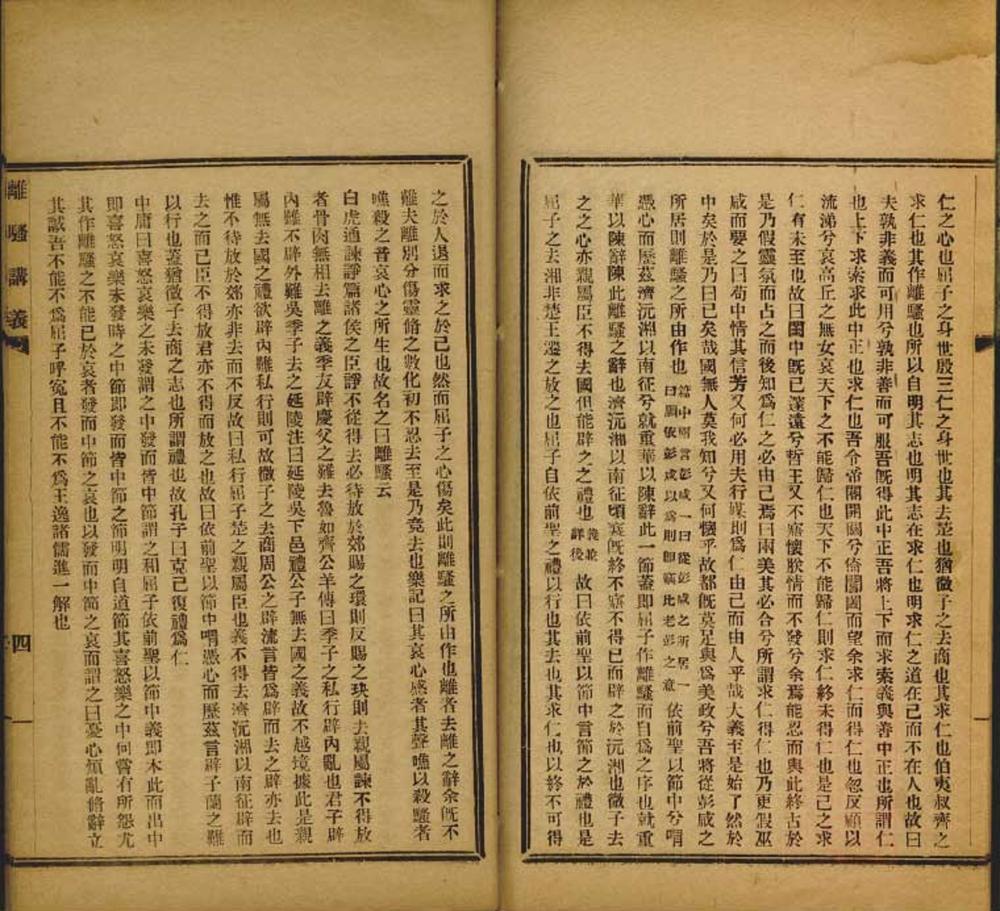 仁之心也屈子之身世殷三仁之身世也其去楚也猶微子之去商也其求仁也伯夷叔齊之
求仁也其作離騷也所以自明其志也明其志在求仁也明求仁之道在己而不在人也故曰
夫孰非義而可用兮孰非善而可服吾旣得此中正吾將上下而求索義與善中正也所謂仁
也上下求索求此中正也求仁也吾令帝閽開關兮倚閶闔而望余求仁而得仁也忽反顧以
流涕兮哀高丘之無女哀天下之不能歸仁也天下不能歸仁則求仁終未得仁也是己之求
仁有未至也故曰閨中旣已邃遠兮哲王又不寤懷朕情而不發兮余焉能忍而與此終古於
是乃假靈氛而占之而後知爲仁之必由己焉曰兩美其必合兮所謂求仁得仁也乃更假巫
咸而要之曰苟中情其信芳又何必用夫行媒則爲仁由己而由人乎哉大義至是始了然於
中矣於是乃曰已矣哉國無人莫我知兮又何懷乎故都旣莫足與爲美政兮吾將從彭咸之
所居則離騷之所由作也篇中兩言彭咸一曰從彭咸之所居一曰願依彭咸以爲則卽竊比老彭之意依前聖以節中兮喟
憑心而歷茲濟沅湘以南征兮就重華以陳辭此一節蓋卽屈子作離騷而自爲之序也就重
華以陳辭陳此離騷之辭也濟沅湘以南征頃襄旣終不寤不得已而辟之於沅湘也微子去
之之心亦親屬臣不得去國但能辟之之禮也義並詳後故曰依前聖以節中言節之於禮也是
屈子之去湘非楚王遷之放之也屈子自依前聖之禮以行也其去也其求仁也以終不可得
之於人退而求之於己也然而屈子之心傷矣此則離騷之所由作也離者去離之辭余旣不
難夫離別兮傷靈脩之數化初不忍去至是乃竟去也樂記曰其哀心感者其聲噍以殺騷者
噍殺之音哀心之所生也故名之曰離騷云
白虎通諫諍篇諸侯之臣諍不從得去必待放於郊賜之環則反賜之玦則去親屬諫不得放
者骨肉無相去離之義季友辟慶父之難去魯如齊公羊傳曰季子之私行辟內亂也君子辟
內難不辟外難吳季子去之延陵注曰延陵吳下邑禮公子無去國之義故不越境據此是親
屬無去國之禮欲辟內難私行則可故微子之去商周公之辟流言皆爲辟而去之辟亦去也
惟不待放於郊亦非去而不反故曰私行屈子楚之親屬臣也義不得去濟沅湘以南征辟而
去之而已臣不得放君亦不得而放之也故曰依前聖以節中喟憑心而歷茲言辟子蘭之難
以行也蓋猶微子去商之志也所謂禮也故孔子曰克己復禮爲仁
中庸曰喜怒哀樂之未發謂之中發而皆中節謂之和屈子依前聖以節中義卽本此而出中
卽喜怒哀樂未發時之中節卽發而皆中節之節明明自道節其喜怒樂之中何嘗有所怨尤
其作離騷之不能已於哀者發而中節之哀也以發而中節之哀而謂之曰憂心煩亂脩辭立
其誠吾不能不爲屈子呼冤且不能不爲王逸諸儒進一解也
離騷講義
四